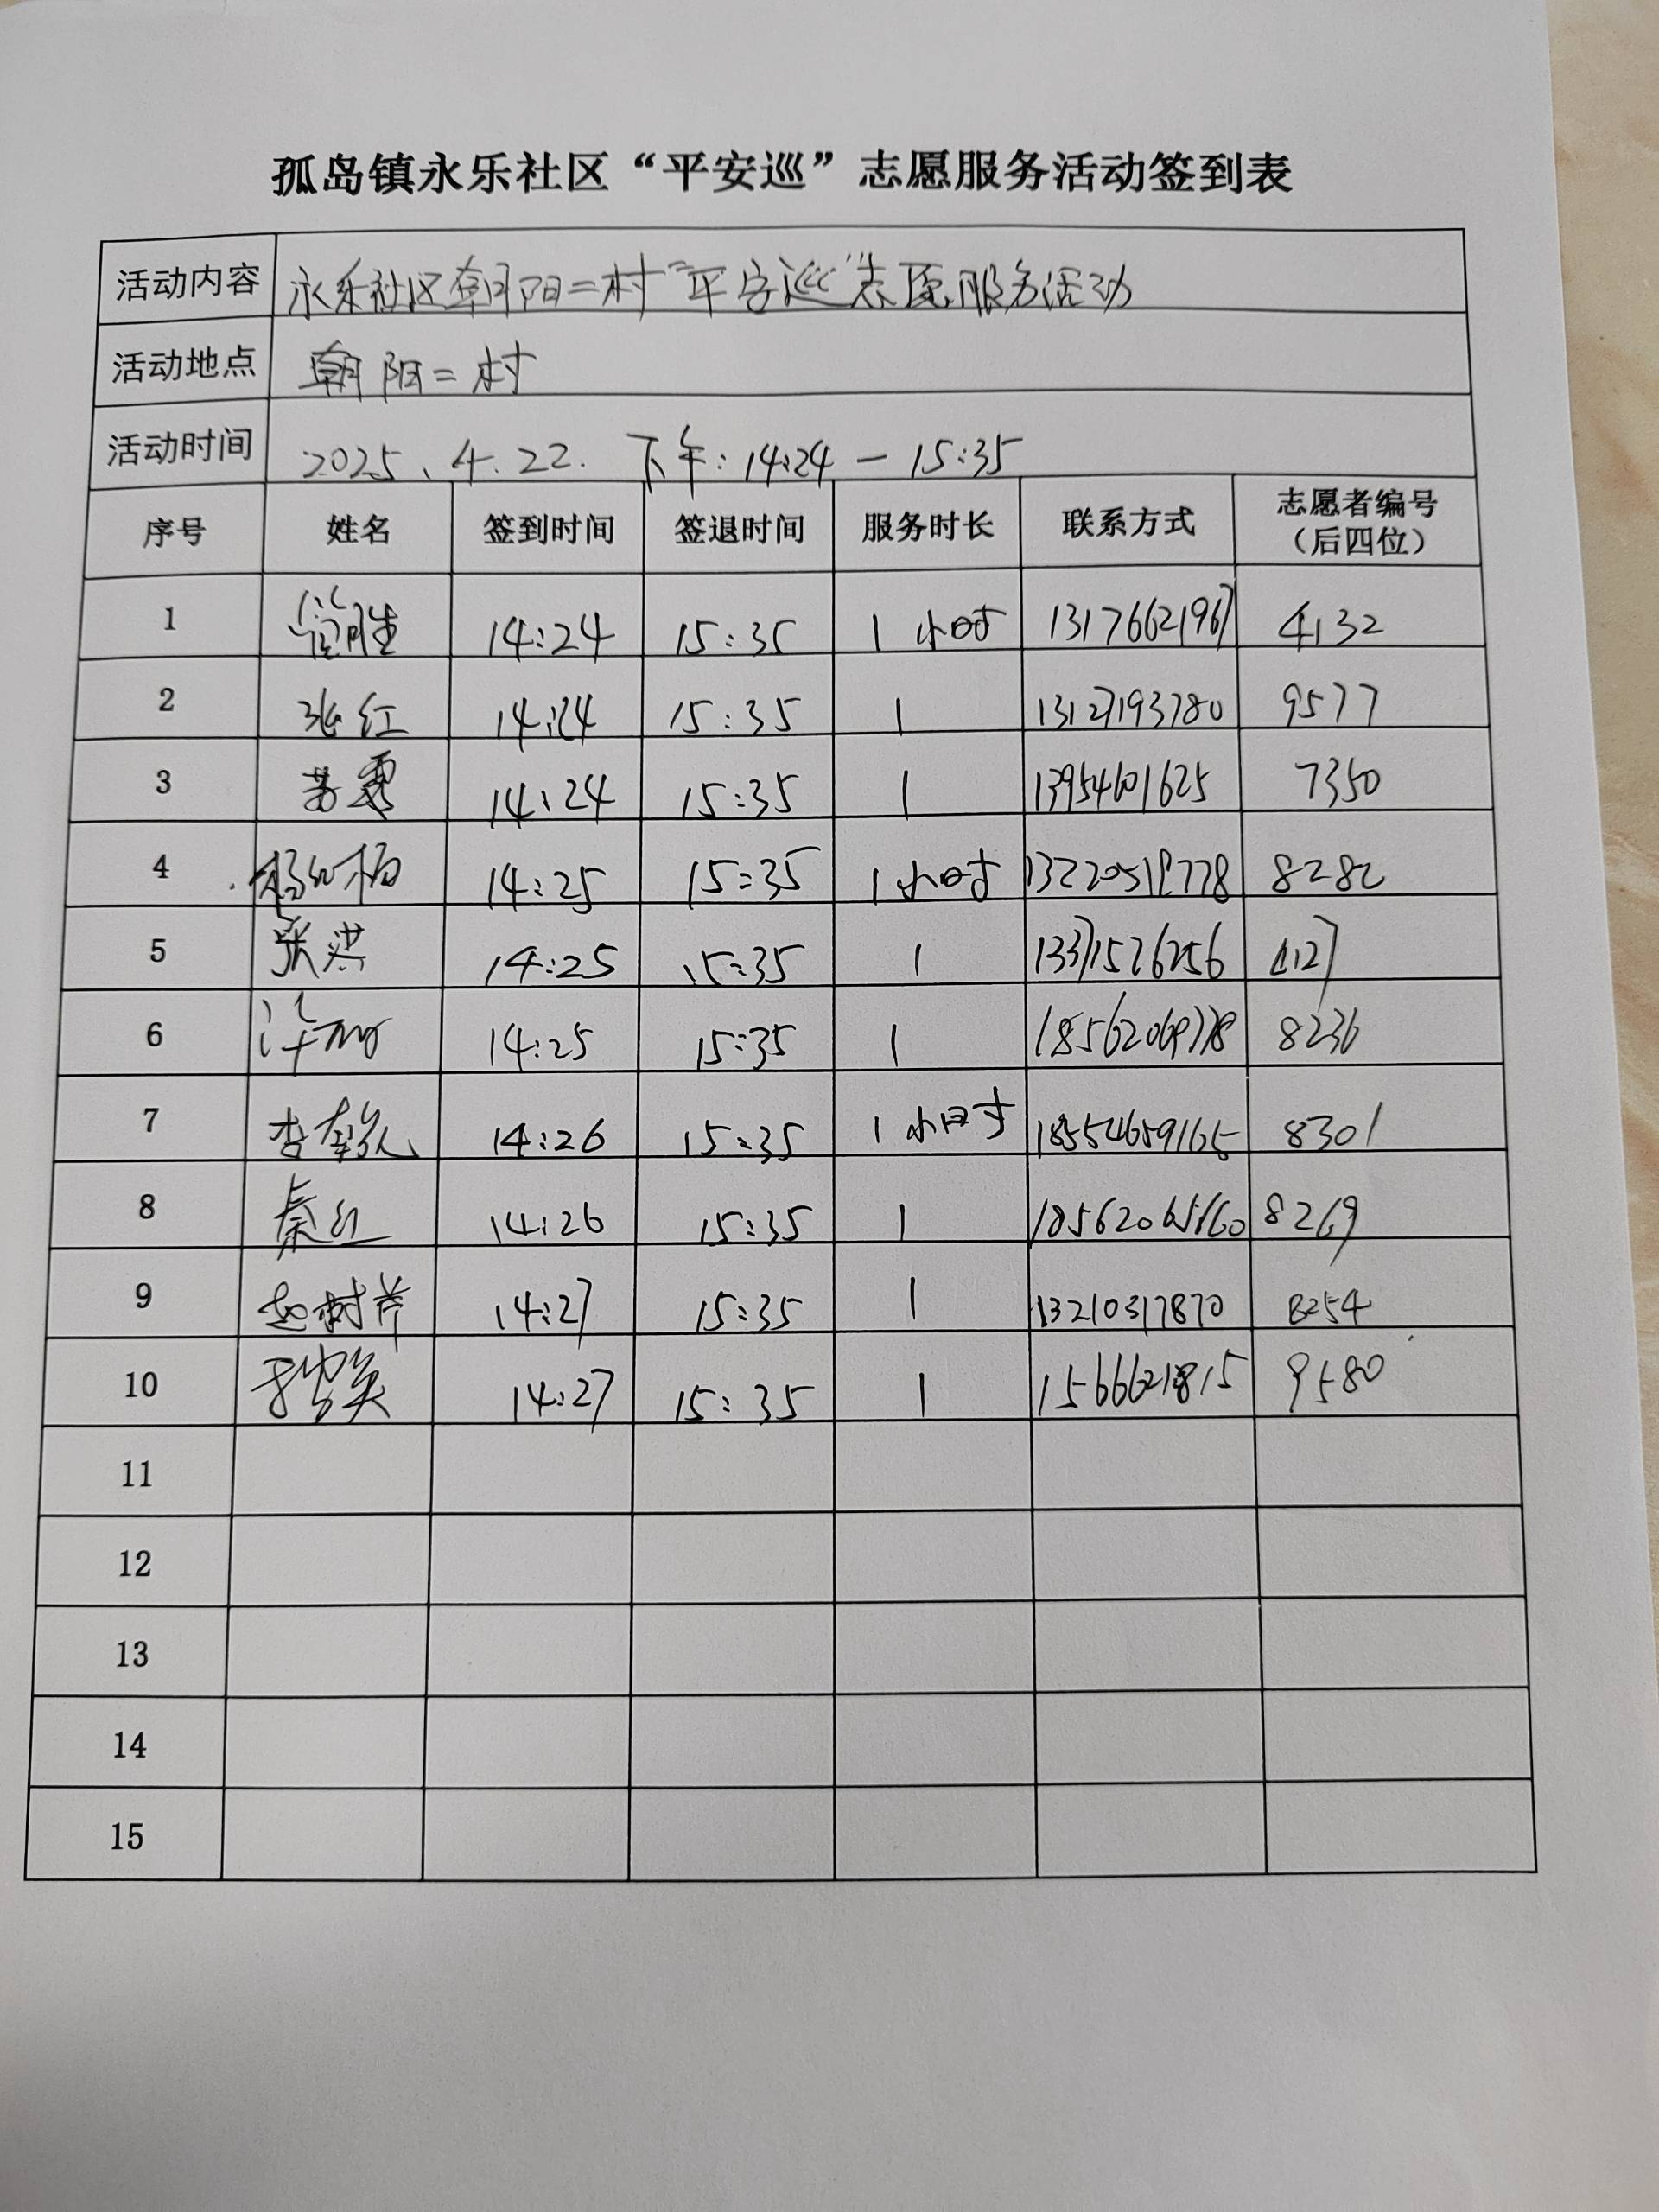 孤岛镇永乐社区“平安巡”志愿服务活动签到表
活动内容 永乐社区朝阳二村“平安巡”志愿服务活动
活动地点 朝阳二村
活动时间 2025.4.22. 下午:14:24-15:35
序号 姓名 签到时间 签退时间 服务时长 联系方式 志愿者编号（后四位）
1 14:24 15:35 1小时 13176621967 4132
2 张红 14:24 15:35 1 13127193780 9577
3 14:24 15:35 1 13954601625 7350
4 14:25 15:35 1小时 8282
5 张洪 14:25 15:35 1 13371526256 4127
6 14:25 15:35 1 8236
7 14:26 15:35 1小时 18554659165 8301
8 秦红 14:26 15:35 1 18562065160 8269
9 14:27 15:35 1 13210317870 8254
10 14:27 15:35 1 9580
11
12
13
14
15